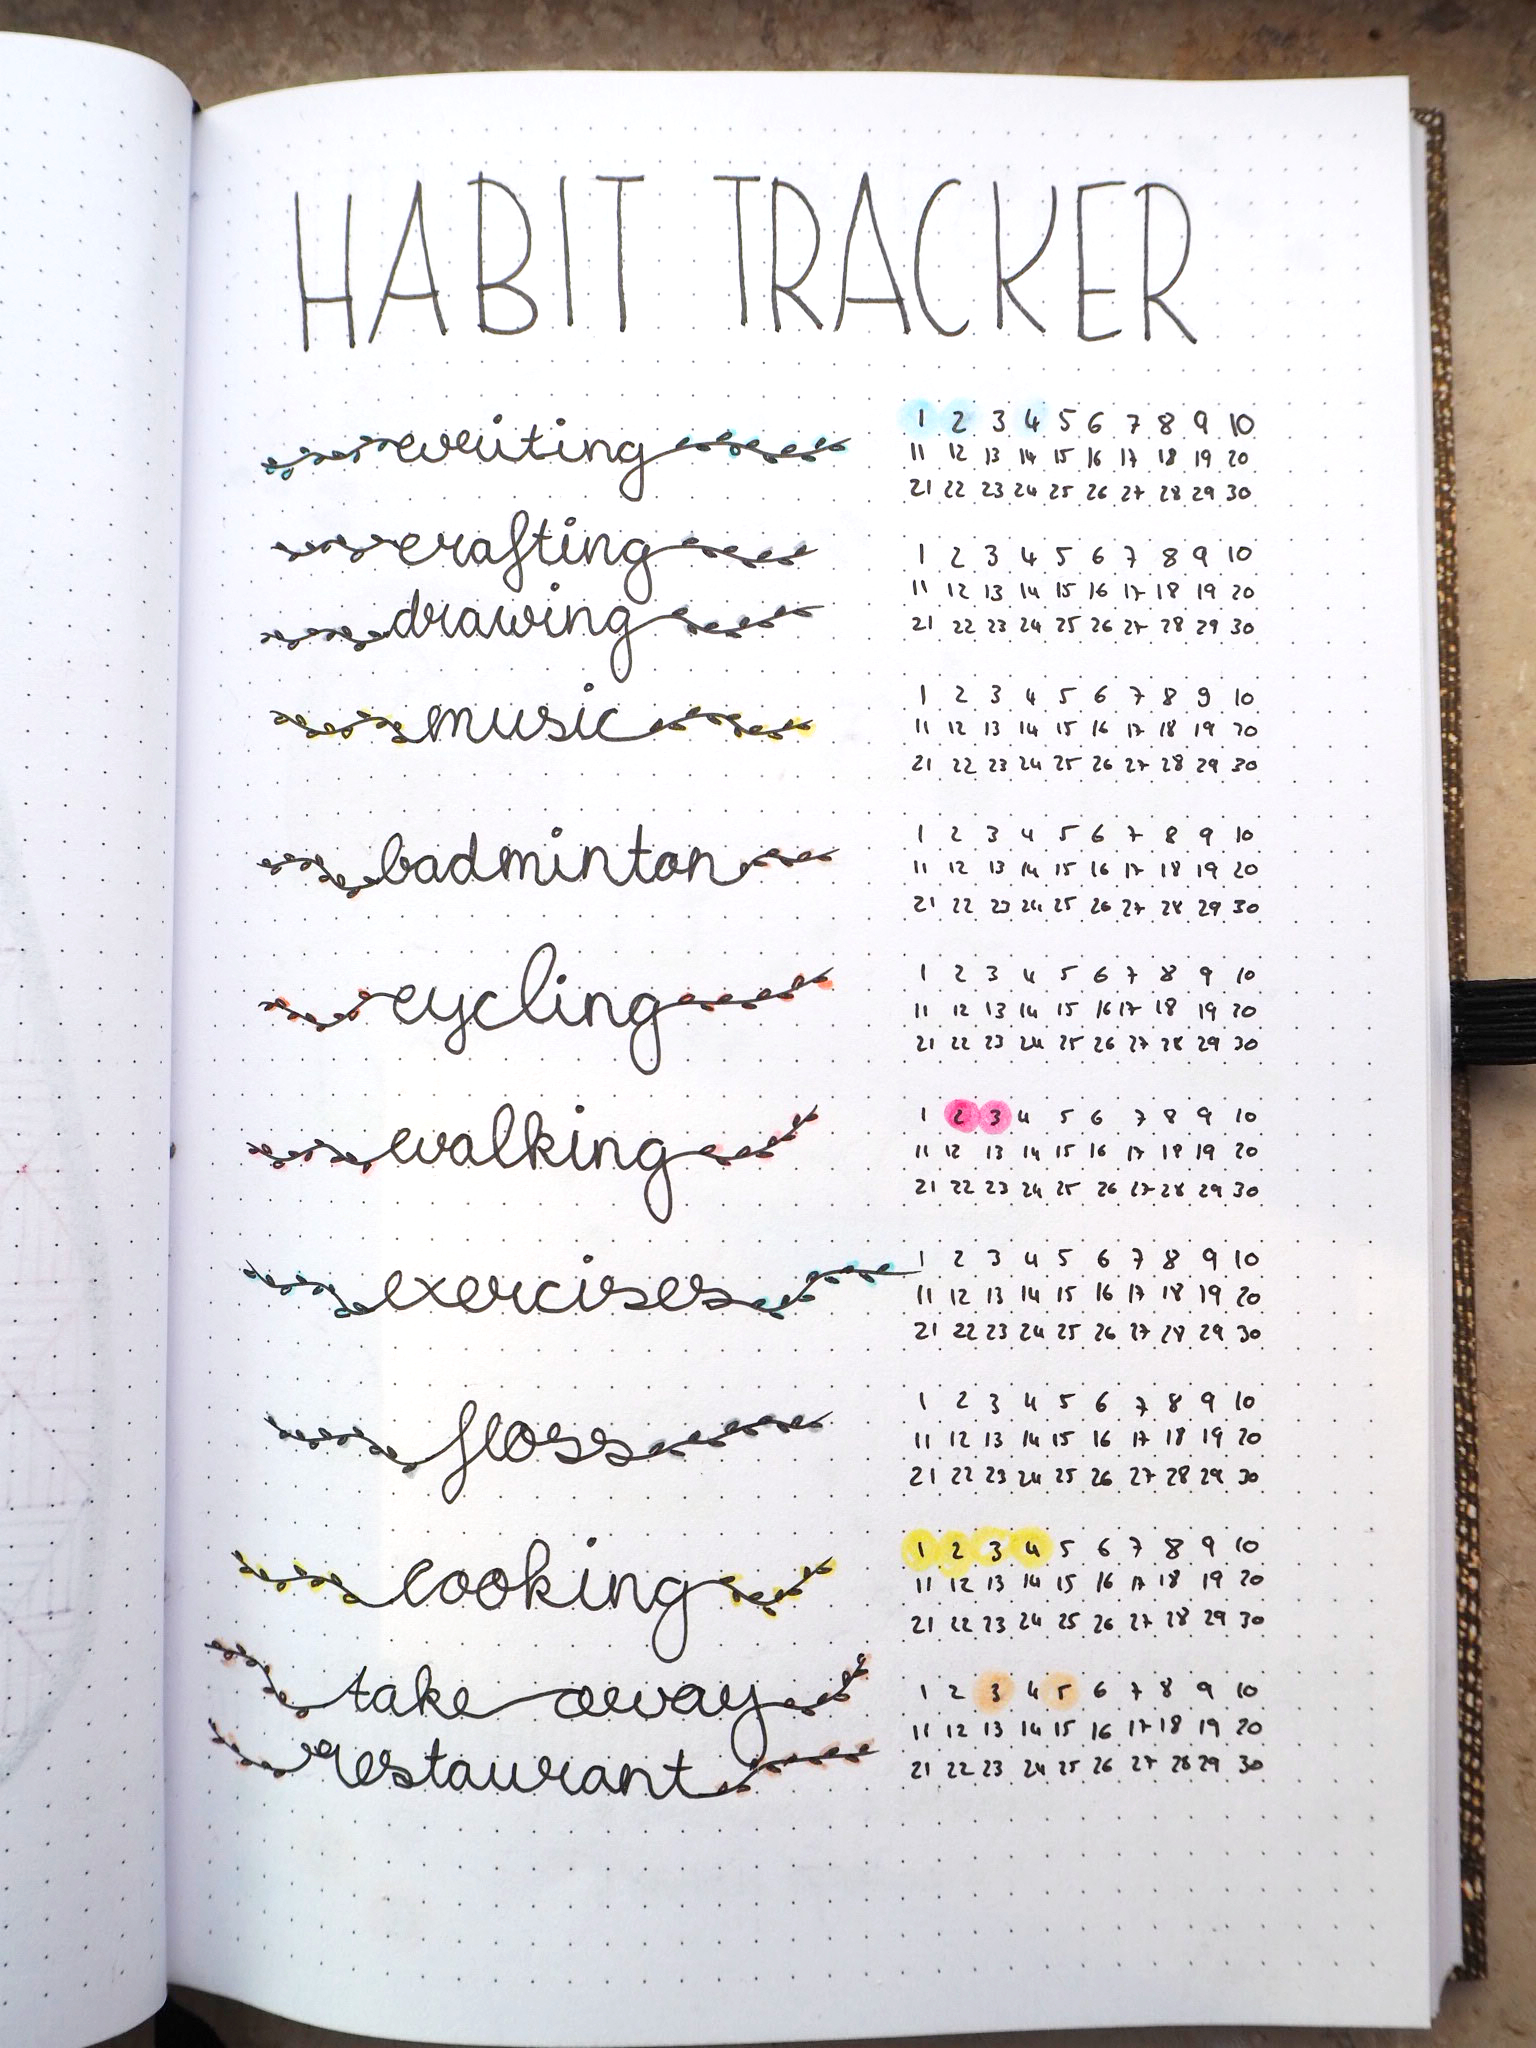 HABIT TRACKER
writing
1 2 3 4 5 6 7 8 9 10
11 12 13 14 15 16 17 18 19 20
21 22 23 24 25 26 27 28 29 30
crafting
drawing
1 2 3 4 5 6 7 8 9 10
11 12 13 14 15 16 17 18 19 20
21 22 23 24 25 26 27 28 29 30
music
1 2 3 4 5 6 7 8 9 10
11 12 13 14 15 16 17 18 19 20
21 22 23 24 25 26 27 28 29 30
badminton
1 2 3 4 5 6 7 8 9 10
11 12 13 14 15 16 17 18 19 20
21 22 23 24 25 26 27 28 29 30
cycling
1 2 3 4 5 6 7 8 9 10
11 12 13 14 15 16 17 18 19 20
21 22 23 24 25 26 27 28 29 30
walking
1 2 3 4 5 6 7 8 9 10
11 12 13 14 15 16 17 18 19 20
21 22 23 24 25 26 27 28 29 30
exercises
1 2 3 4 5 6 7 8 9 10
11 12 13 14 15 16 17 18 19 20
21 22 23 24 25 26 27 28 29 30
floss
1 2 3 4 5 6 7 8 9 10
11 12 13 14 15 16 17 18 19 20
21 22 23 24 25 26 27 28 29 30
cooking
1 2 3 4 5 6 7 8 9 10
11 12 13 14 15 16 17 18 19 20
21 22 23 24 25 26 27 28 29 30
take away
restaurant
1 2 3 4 5 6 7 8 9 10
11 12 13 14 15 16 17 18 19 20
21 22 23 24 25 26 27 28 29 30